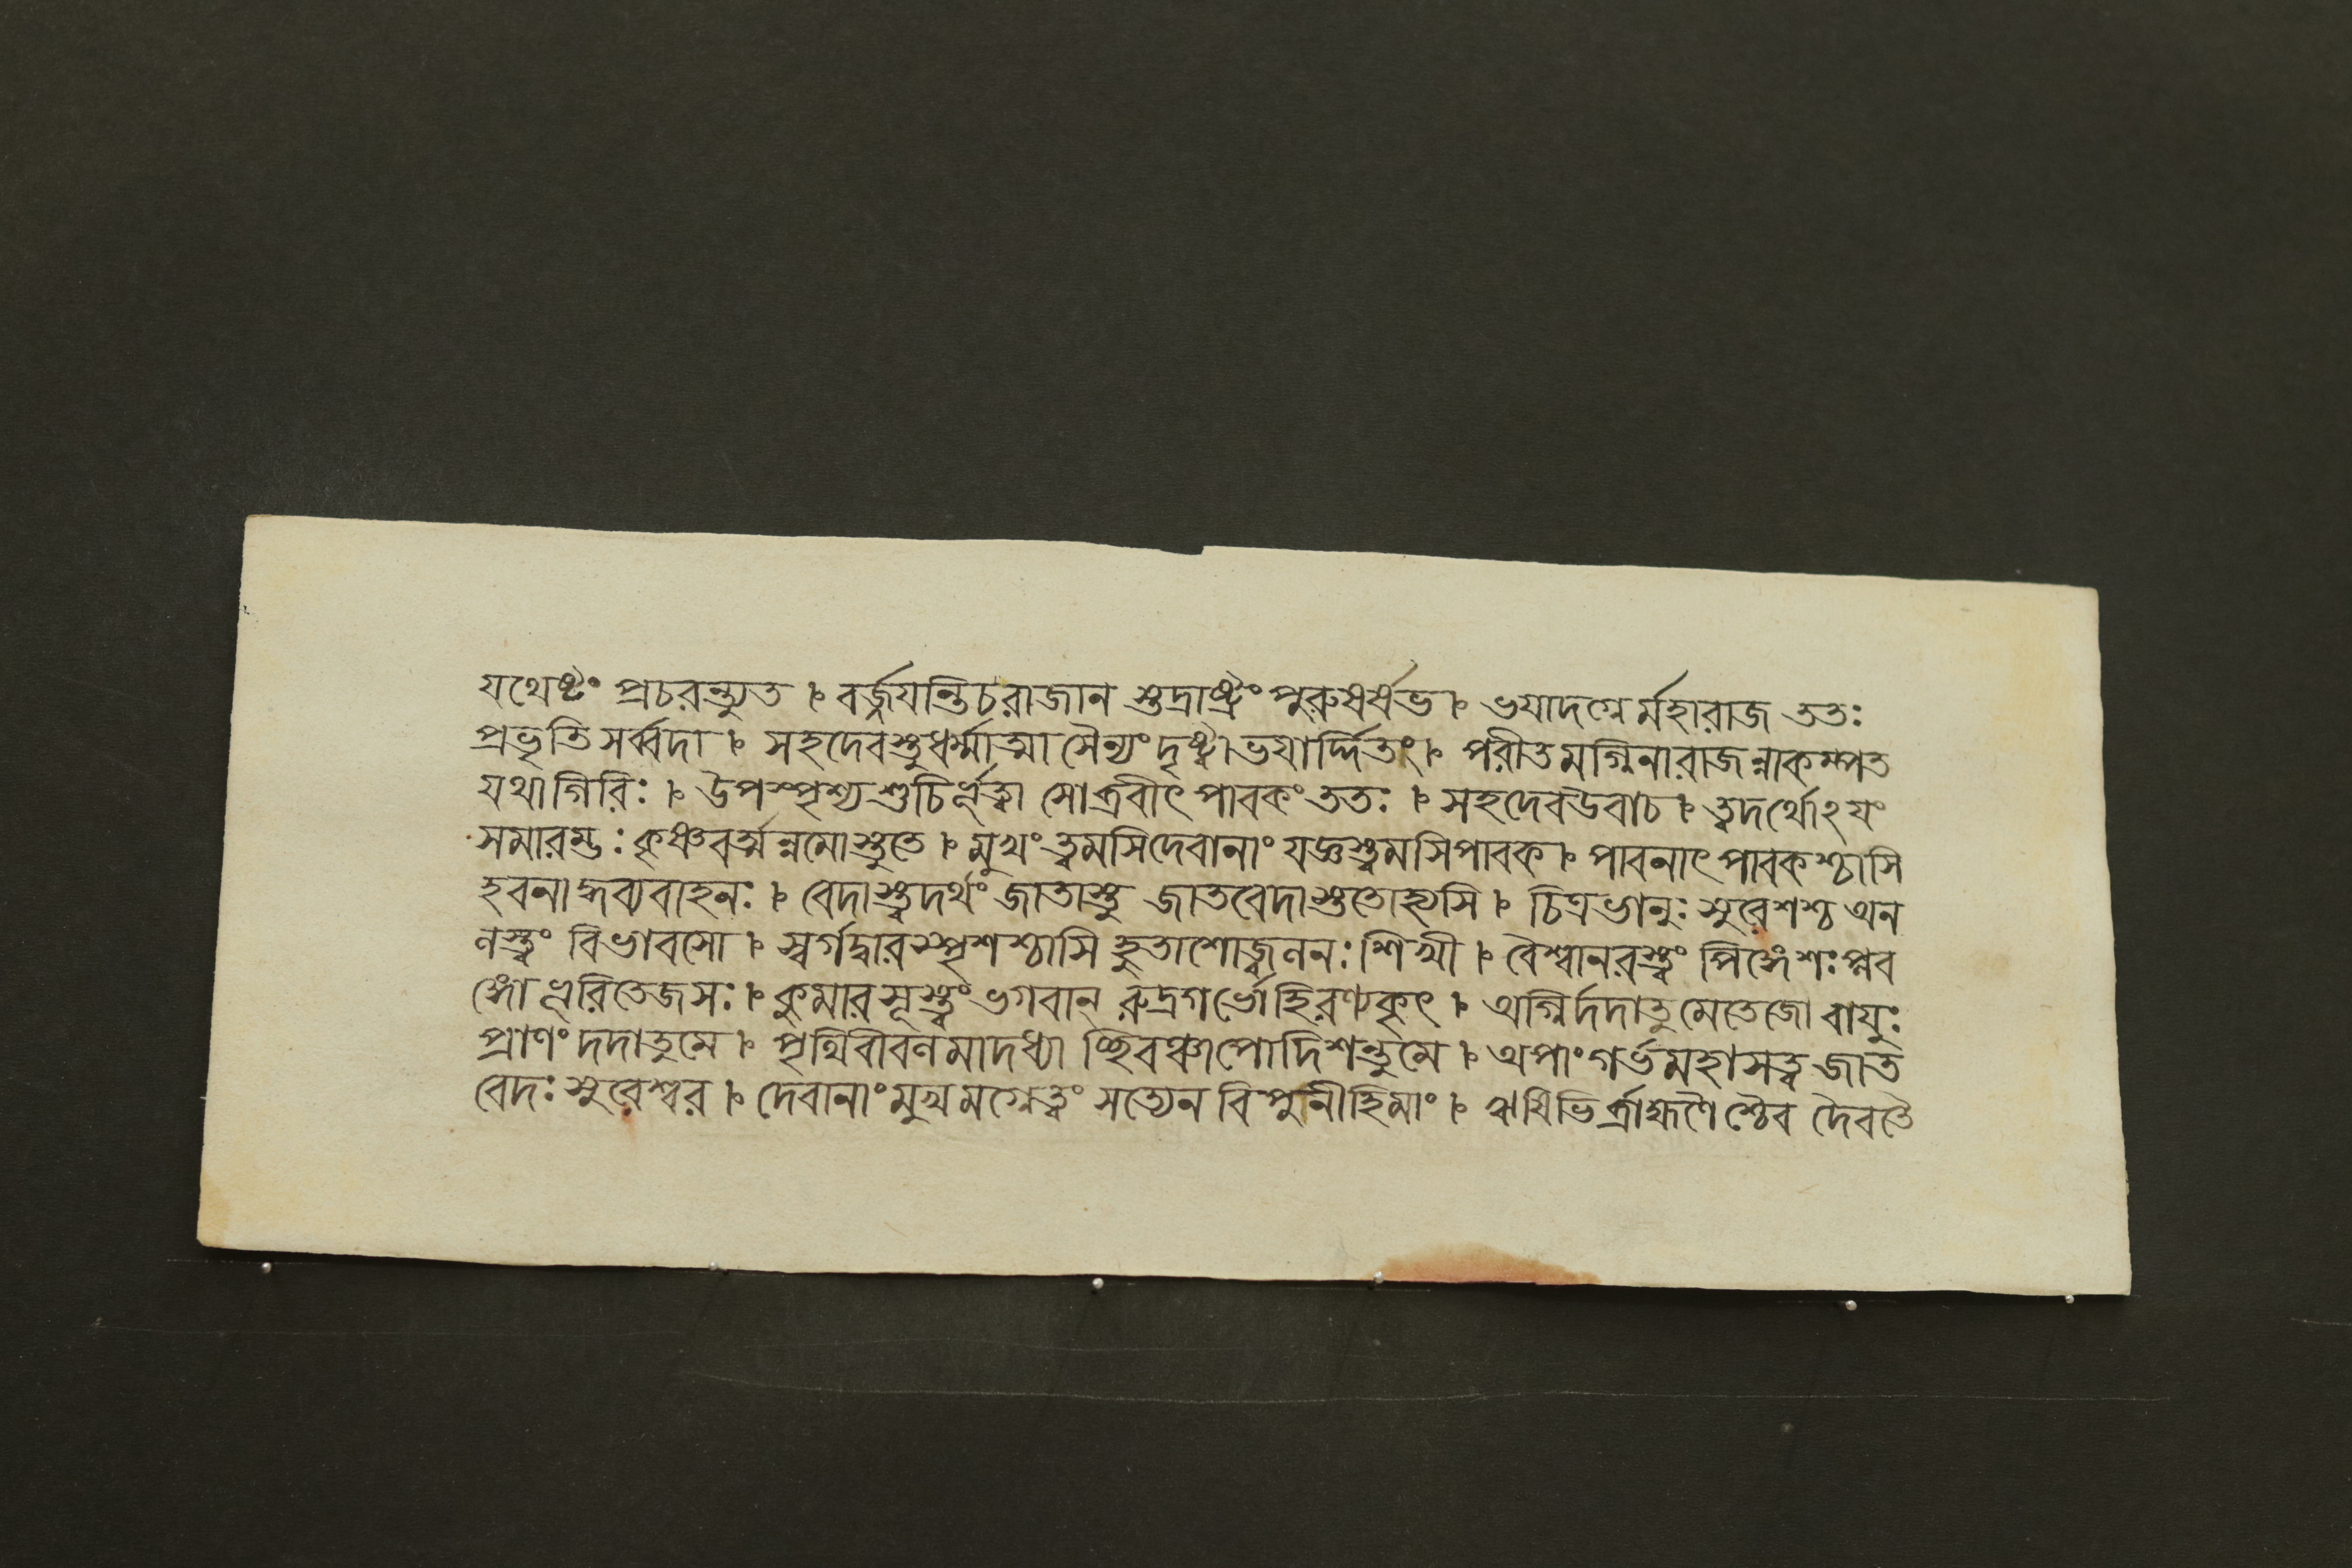 যথেষ্টং প্রচরন্ত্যুত । বর্জ্জয়ন্তিচরাজান শুদ্রাষ্ট্রং পুরুষর্ষভ । ভয়াদগ্নের্মহারাজ ততঃ
প্রভৃতি সর্ব্বদা । সহদেবস্তুধর্ম্মাত্মা সৈন্যংদৃষ্ট্বাভয়ার্দ্দিতং । পরীতমগ্নিনারাজন্নাকম্পত
যথাগিরিঃ । উপস্পৃশ্যশুচির্ভূত্বা সোব্রবীৎ পাবকংততঃ । সহদেবউবাচ । ত্বদর্থোঽয়ং
সমারম্ভঃ কৃষ্ণবর্ত্মন্নমোস্তুতে । মুখংত্বমসিদেবানাং যজ্ঞস্ত্বমসিপাবক । পাবনাৎপাবকশ্চাসি
হবনাদ্ধব্যবাহনঃ । বেদাস্ত্বদর্থংজাতাস্তু জাতবেদাস্ততোহ্যসি । চিত্রভানুঃ সুরেশশ্চ অন
নস্ত্বং বিভাবসো । স্বর্গদ্বারস্পৃশশ্চাসি হুতাশোজ্বলনঃ শিখী । বৈশ্বানরস্ত্বং পিঙ্গেশঃ প্লব
ঙ্গোভূরিতেজসঃ । কুমারসূস্ত্বংভগবান্ রুদ্রগর্ভোহিরণ্যকৃৎ । অগ্নির্দদাতুমেতেজো বায়ুঃ
প্রাণং দদাতুমে । পৃথিবীবলমাদধ্যা চ্ছিবঞ্চাপোদিশন্তুমে । অপাংগর্ভমহাসত্ত্ব জাত
বেদঃ সুরেশ্বর । দেবানাংমুখমগ্নেত্বং সত্যেন বিপুনীহিমাং । ঋষিভির্ব্রাহ্মণৈশ্চৈব দৈবতৈ